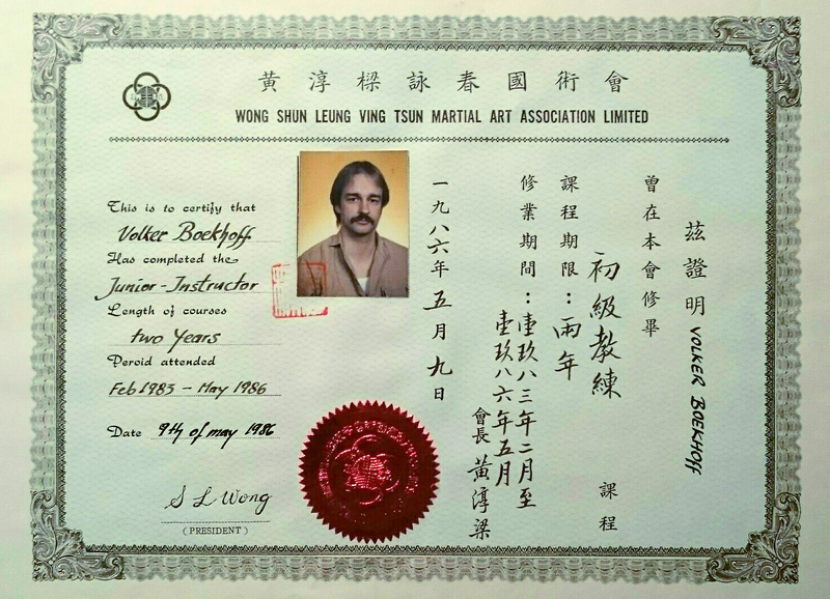 黃淳樑詠春國術會
WONG SHUN LEUNG VING TSUN MARTIAL ART ASSOCIATION LIMITED
This is to certify that
Volker Boekhoff
Has completed the
Junior-Instructor
Length of courses
two Years
Peroid attended
Feb 1983 - May 1986
Date 9th of may 1986
S L Wong
(PRESIDENT)
茲證明 VOLKER BOEKHOFF
曾在本會修畢
初級教練 課程
課程期限：兩年
修業期間：壹玖八三年二月至
壹玖八六年五月
會長 黃淳梁
一九八六年五月九日